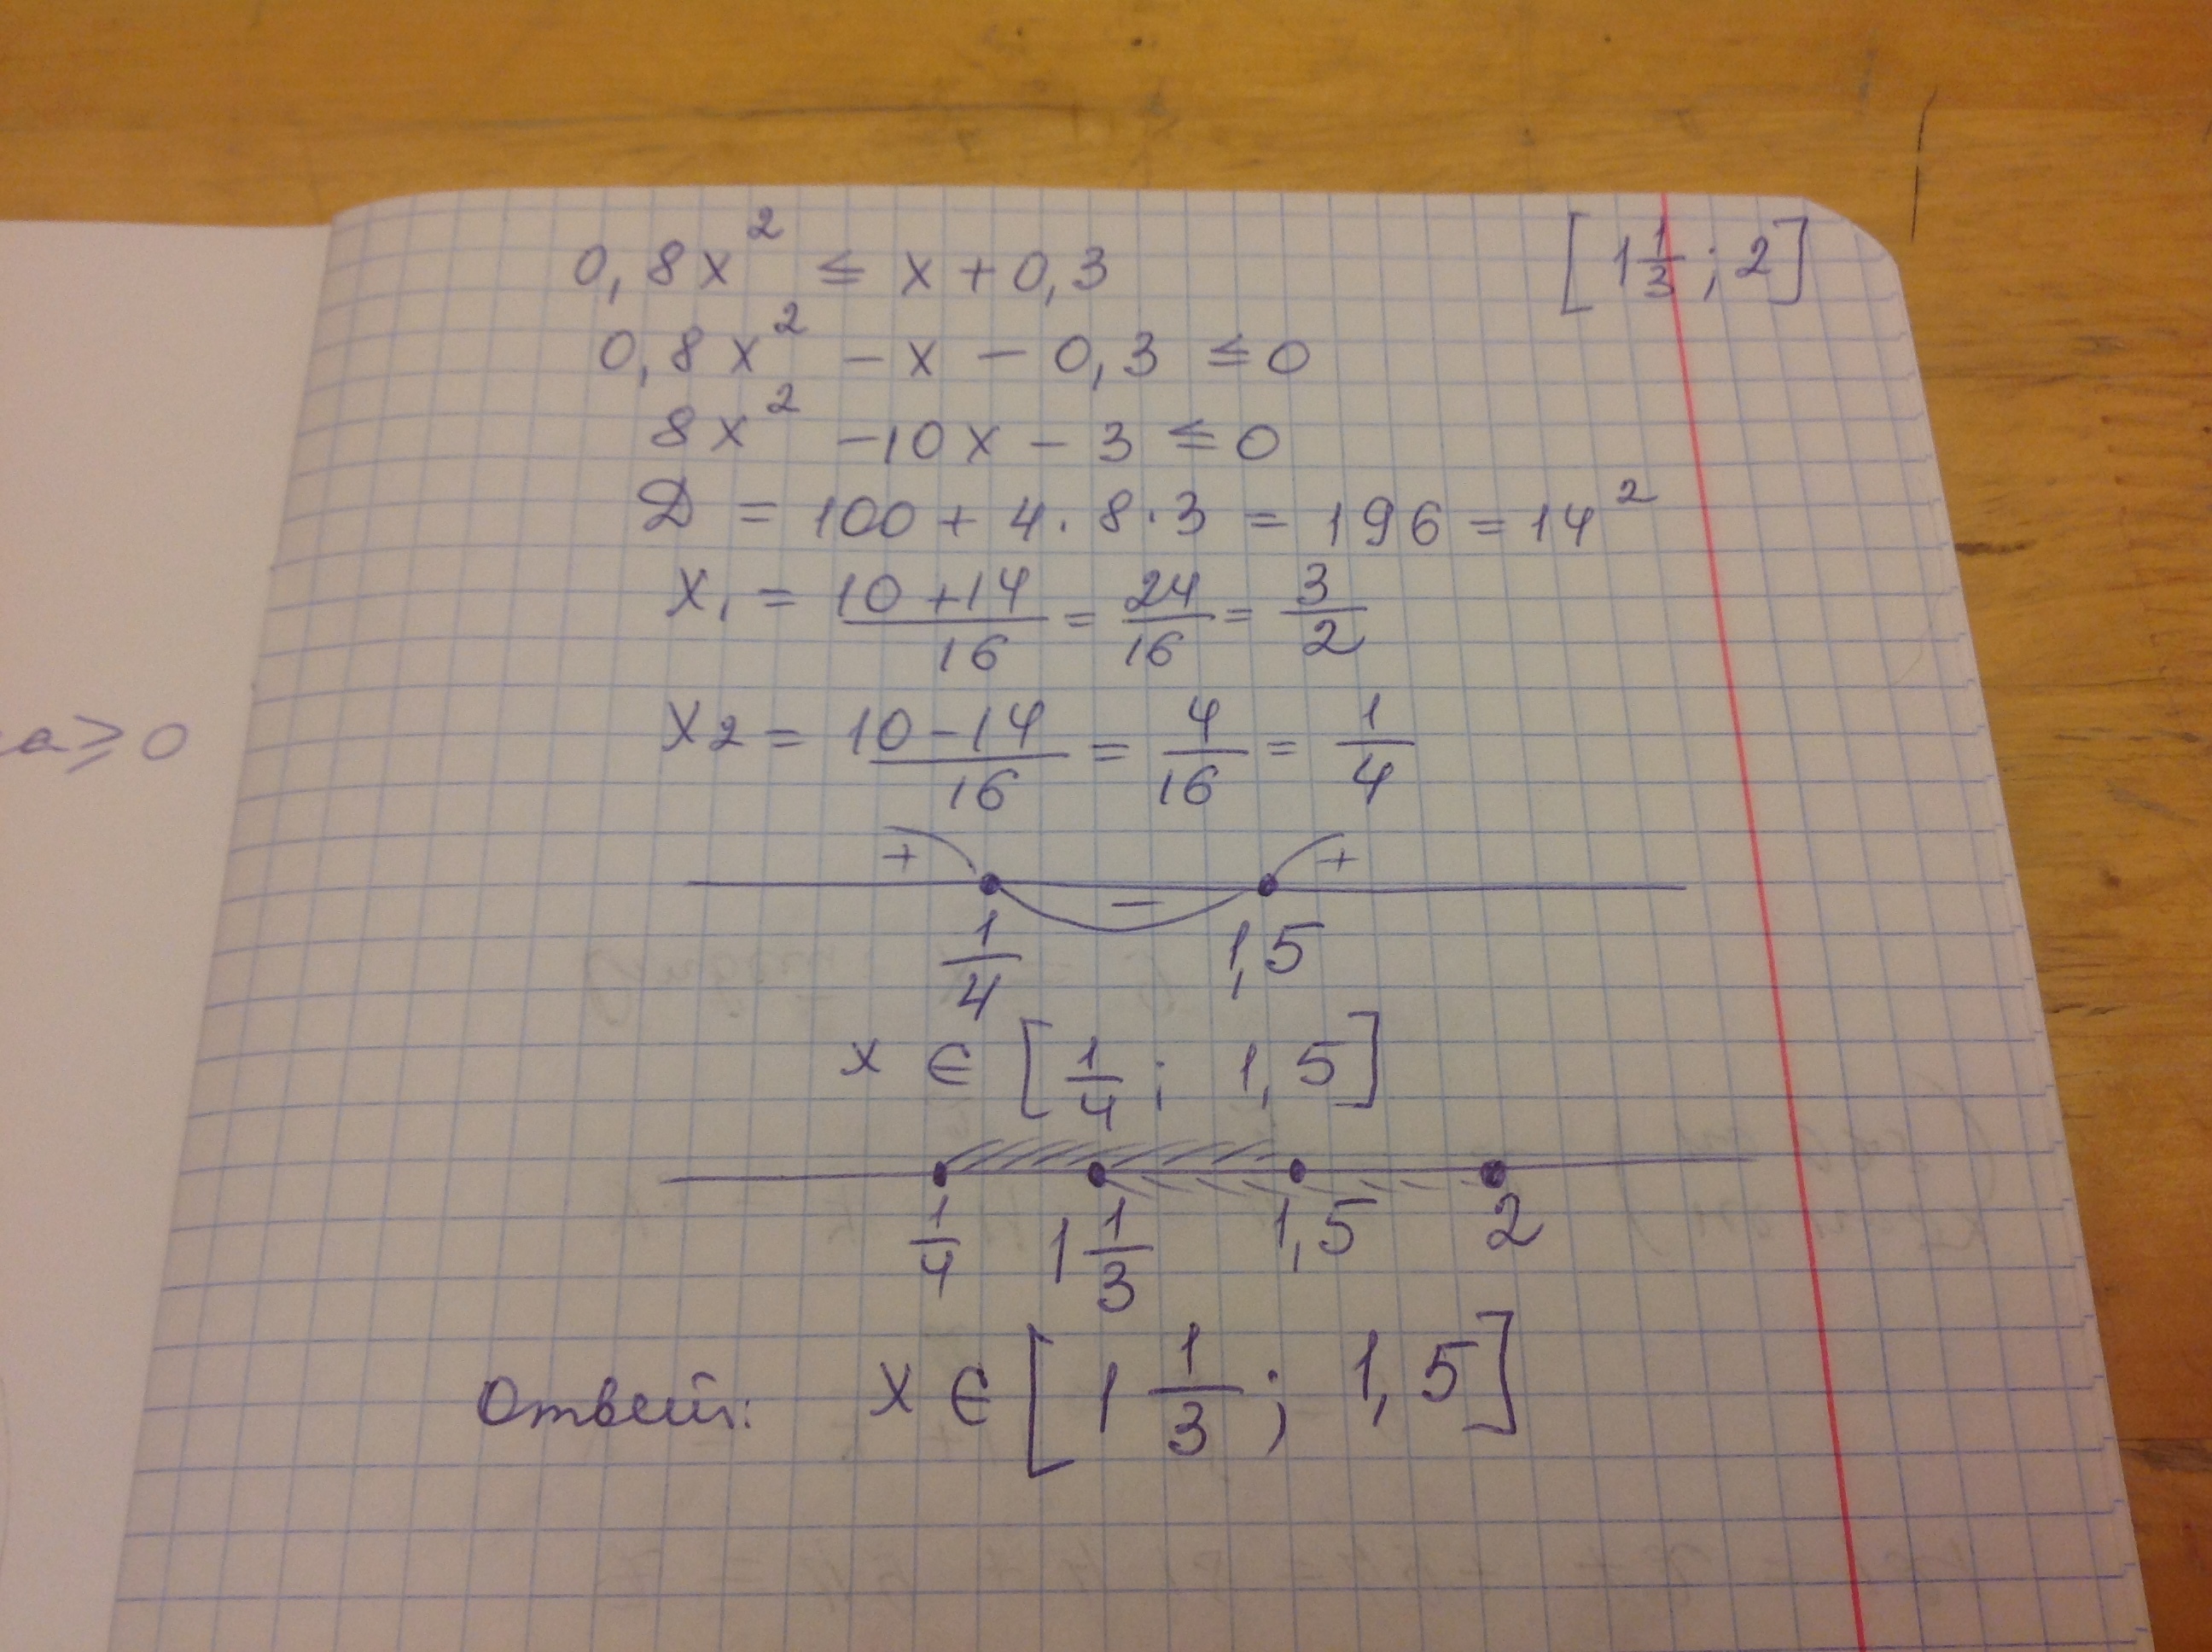 0,8x² ≤ x + 0,3 [1 1/3 ; 2]
0,8x² - x - 0,3 ≤ 0
8x² - 10x - 3 ≤ 0
Д = 100 + 4 · 8 · 3 = 196 = 14²
x₁ = (10 + 14)/16 = 24/16 = 3/2
a ≥ 0
x₂ = (10 - 14)/16 = 4/16 = 1/4
+ - +
1/4 1,5
x ∈ [1/4 ; 1,5]
1/4 1 1/3 1,5 2
Ответ: x ∈ [1 1/3 ; 1,5]